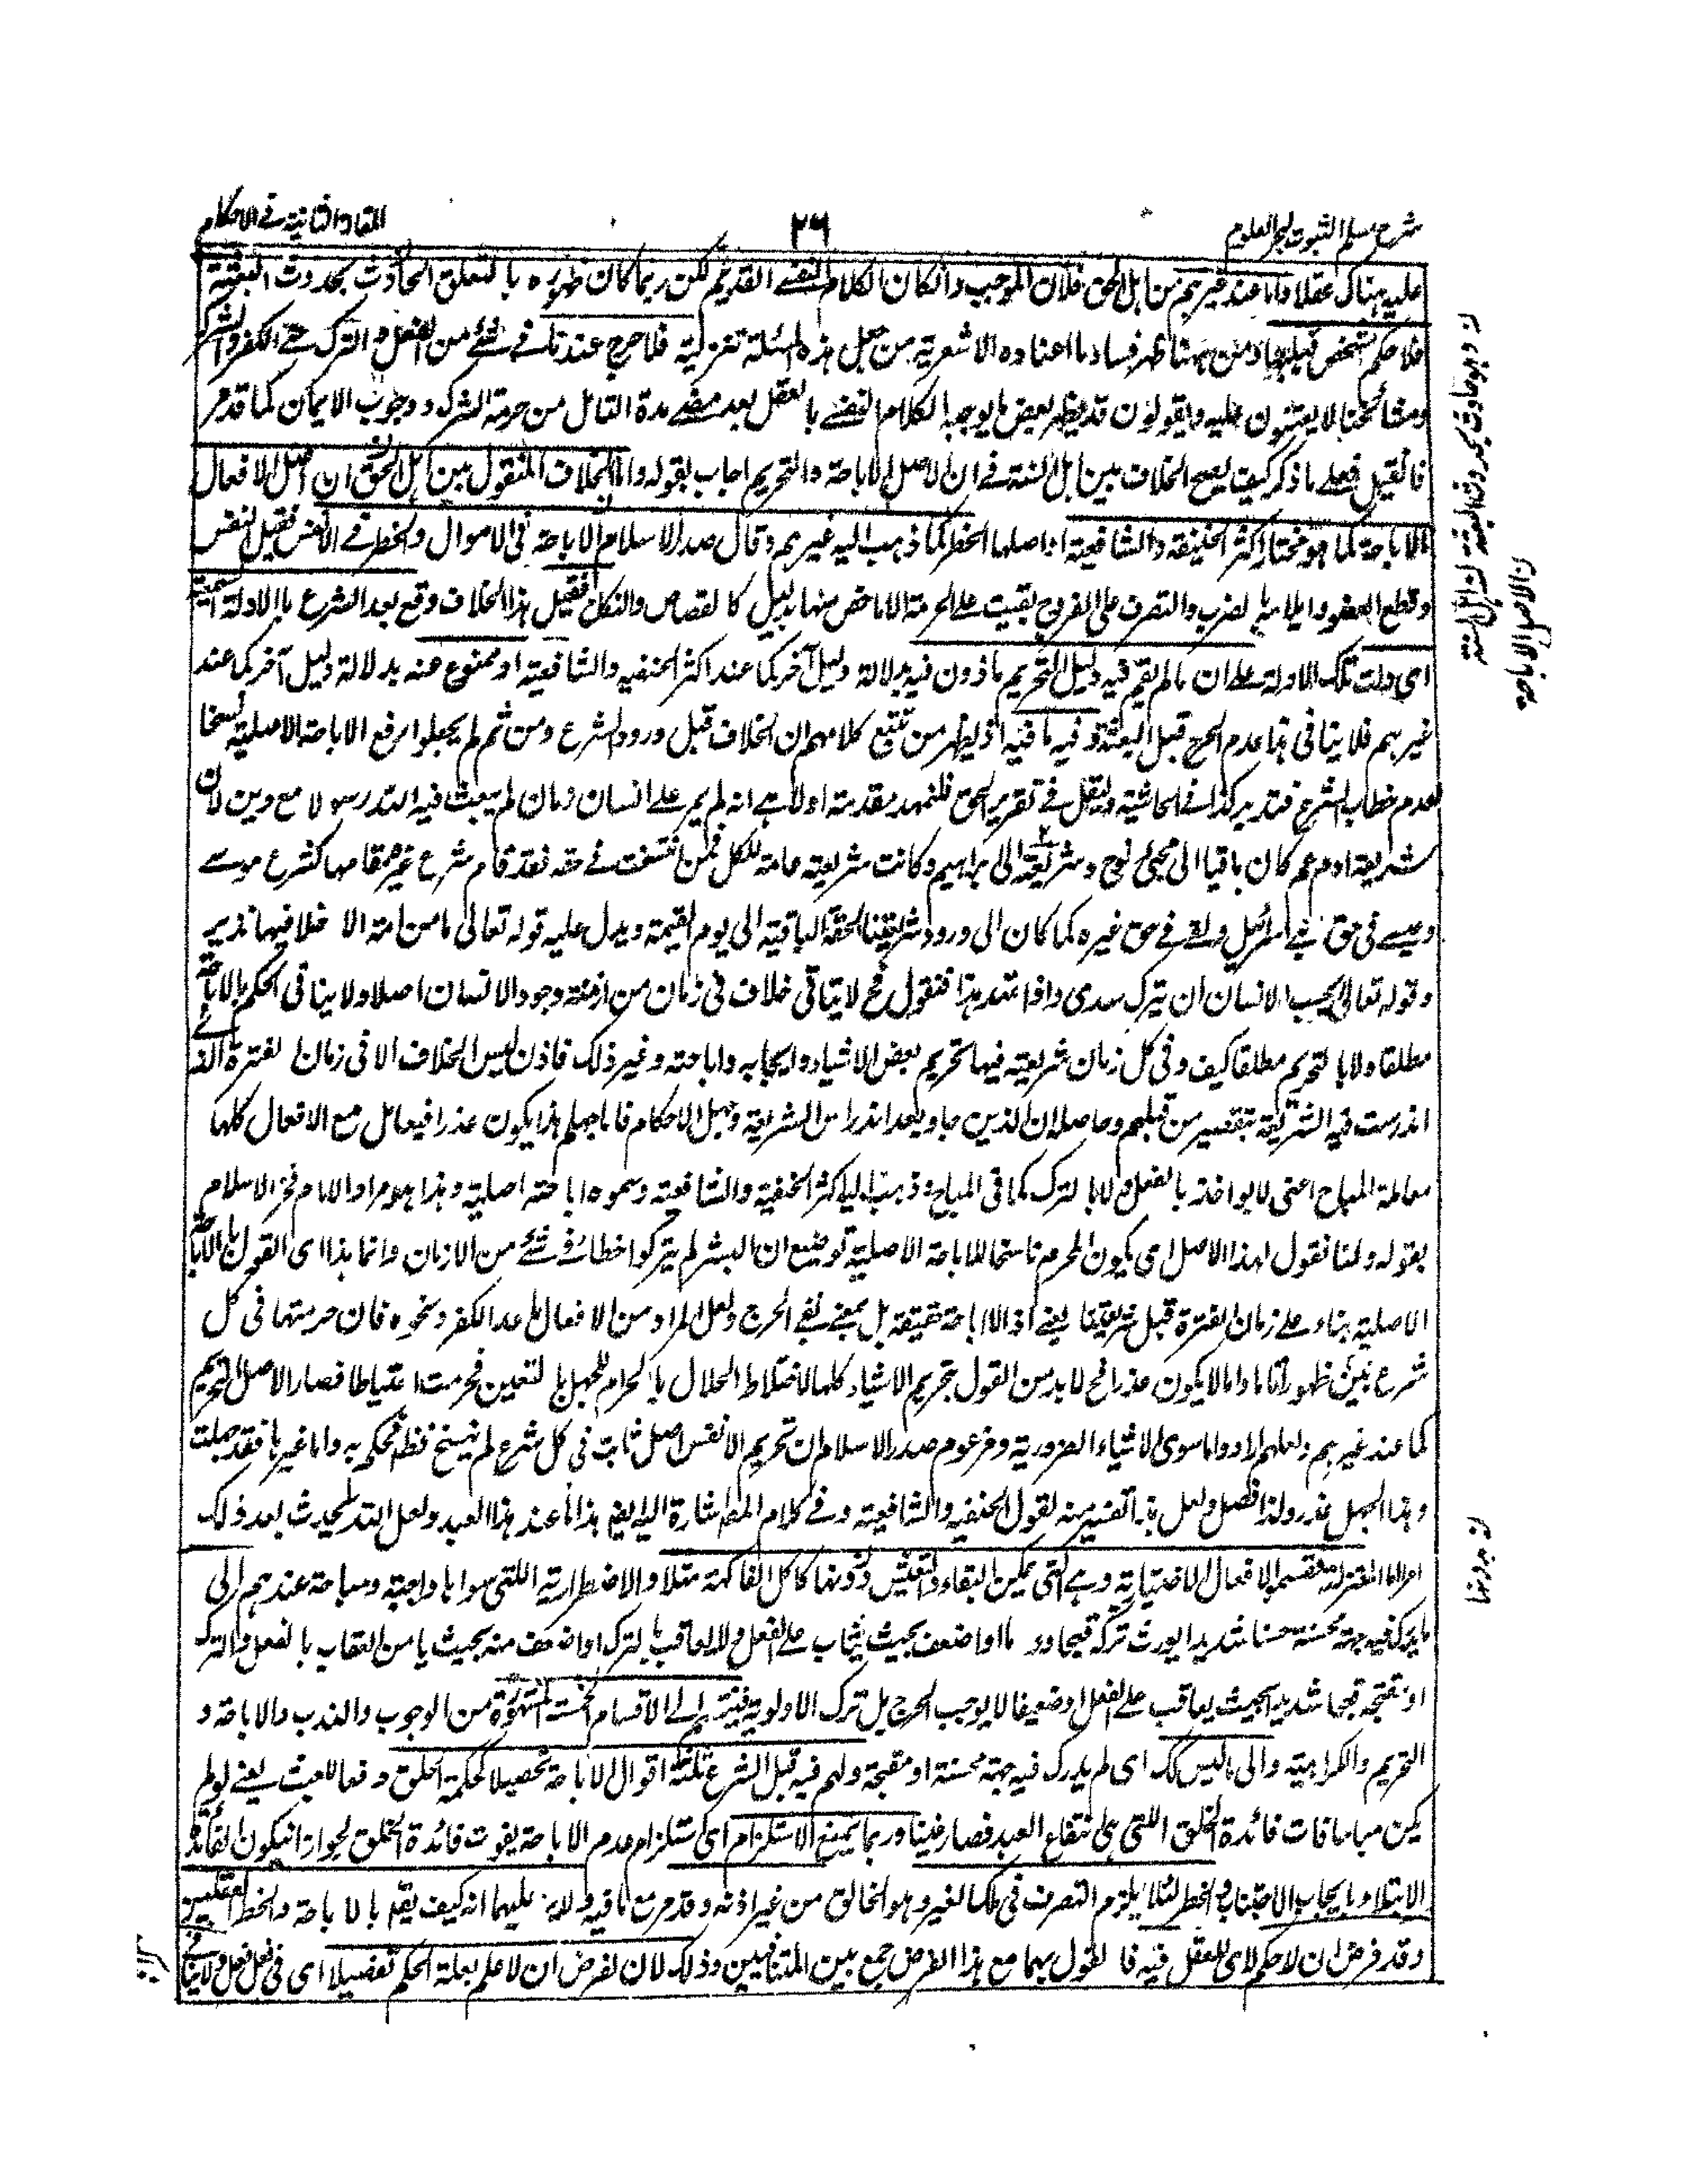 شرح مسلم الثبوت لبحر العلوم
٢٦
المقالة الثانية في الاحكام
عليه هناك عقلا واما عند غيرهم من اهل الحق فلان الموجب وان كان الكلام النفسي القديم لكن ربما كان ظهوره بالتعلق الحادث بحدوث البعثة
فلا حكم مشخص قبلها ومن ههنا ظهر فساد ما اعتاده الاشعرية من جعل هذه المسئلة تنزلية فلا حرج عندنا في شئ من الفعل والترك حتى الكفر والشرك
ومشائخنا لا يعتنون عليه ويقولون قد يظهر بعض ما يوجبه الكلام النفسي بالعقل بعد مضي مدة التامل من حرمة الشرك ووجوب الايمان كما قد مر
فان قيل فعلى ما ذكر كيف يصح الخلاف بين اهل السنة في ان الاصل الاباحة والتحريم اجاب بقوله واما الخلاف المنقول بين اهل الحق ان اصل الافعال
الاباحة كما هو مختار اكثر الحنفية والشافعية او اصلها الحظر كما ذهب اليه غيرهم وقال صدر الاسلام الاباحة في الاموال والحظر في الانفس فقيل لنفس
وقطع العضو وايلامه بالضرب والتصرف على الفروج بقيت على الحرمة الا ما خص منها بدليل كالقصاص والنكاح فقيل هذا الخلاف وقع بعد الشرع بالادلة السمعية
اى دلت تلك الادلة على ان ما لم يقم فيه دليل التحريم ماذون فيه بدلالة دليل آخر كما عند اكثر الحنفيه والشافعية او ممنوع عنه بدلالة دليل آخر كما عند
غيرهم فلا ينافى هذا عدم الحرج قبل البعثة وفيه ما فيه اذ يظهر من تتبع كلامهم ان الخلاف قبل ورود الشرع ومن ثم لم يجعلوا رفع الاباحة الاصلية نسخا
لعدم خطاب الشرع فتدبر كذا في الحاشية ولنقل في تقرير الحق فلنمهد مقدمة اولا هى انه لم يمر على انسان زمان لم يبعث فيه الله رسولا مع دين لان
شريعة ادم عم كان باقيا الى مجئ نوح وشريعته الى ابراهيم وكانت شريعته عامة للكل فمن انتسخت في حقه فقد قام شرع غيره مقامها كشرع موسى
وعيسى فى حق بني اسرائيل وبقى في حق غيره كما كان الى ورود شريعتنا الحقة الباقية الى يوم القيمة ويدل عليه قوله تعالى ما من امة الا خلا فيها نذير
وقوله تعالى ايحسب الانسان ان يترك سدى واذا تمهد هذا فنقول ح لا يتاتى خلاف فى زمان من ازمنة وجود الانسان اصلا ولا يتاتى الحكم بالاباحة
مطلقا ولا بالتحريم مطلقا كيف وفى كل زمان شريعة فيها تحريم بعض الاشياء وايجابه واباحته وغير ذلك فاذن ليس الخلاف الا فى زمان الفترة الذى
اندرست فيه الشريعة بتقصير من قبلهم وحاصله ان الذين جاؤا بعد اندراس الشريعة وجهل الاحكام فاما جهلهم هذا يكون عذرا فيعامل مع الافعال كلها
معاملة المباح اعنى لا يواخذ بالفعل ولا بالترك كما فى المباح وذهب اليه اكثر الحنفية والشافعية وسموه اباحة اصلية وهذا هو مراد الامام فخر الاسلام
بقوله ولسنا نقول بهذا الاصل اى يكون المحرم ناسخا للاباحة الاصلية بوضع ان البشر لم يتركوا سدى في شئ من الازمان وانما هذا اى القول بالاباحة
الاصلية بناء على زمان الفترة قبل شريعتنا يعنى اذ لا اباحة حقيقة بل بمعنى نفى الحرج ولعل المراد من الافعال ما عدا الكفر ونحوه فان حرمتها فى كل
شرع بين ظهورا تاما واما لا يكون عذرا فح لا بد من القول بتحريم الاشياء كلها لاختلاط الحلال بالحرام للجهل بالتعيين فحرمت احتياطا فصار الاصل التحريم
كما عند غيرهم ولعلهم ارادوا ما سوى الاشياء الضرورية ومزعوم صدر الاسلام ان تحريم الانفس اصل ثابت فى كل شرع لم ينسخ قط فحكم به واما غيرها فقد جهلت
وهذا الجهل عذر ولذا فصل ولعل هذا تفسير منه لقول الحنفيه والشافعية وفي كلام المص اشارة اليه ايضا هذا ما عند هذا العبد ولعل الله يحدث بعد ذلك
امرا اما المعتزلة فقسموا الافعال الاختيارية وهى التى يمكن البقاء والتعيش دونها كاكل الفاكهة مثلا والاضطرارية اللتى سواها واجبة ومباحة عندهم الى
ما يدرك فيه جهة محسنة حسنا شديدا يورث تركه قبحا او اضعف بحيث يثاب على الفعل ولا يعاقب بالترك او اضعف منه بحيث يامن العقاب بالفعل والترك
او مقبحة قبحا شديدا بحيث يعاقب على الفعل او ضعيفا لا يوجب الحرج بل ترك الاولوية فينقسم الى الاقسام الخمسة المشهورة من الوجوب والندب والاباحة و
التحريم والكراهية والى ما ليس كك اى لم يدرك فيه جهة محسنة او مقبحة ولهم فيه قبل الشرع ثلثة اقوال الاباحة تحصيلا لحكمة الخلق ودفعا للعبث يعنى لو لم
يكن مباحا فات فائدة الخلق اللتى هى انتفاع العبد فصار عبثا وربما يمنع الاستلزام اى استلزام عدم الاباحة يفوت فائدة الخلق لجواز ان يكون الفائدة
الابتلاء بايجاب الاجتناب والحظر لئلا يلزم التصرف فى ملك الغير وهو الخالق من غير اذنه وقد مر مع ما فيه ولا يرد عليهما انه كيف يقع بالاباحة والحظر العقليين
وقد فرض ان لا حكم لاى للعقل فيه فالقول بهما مع هذا الفرض جمع بين المتنافيين وذلك لان الفرض ان لا علم بعلة الحكم تفصيلا اى فى فعل فعل ولا ينافي